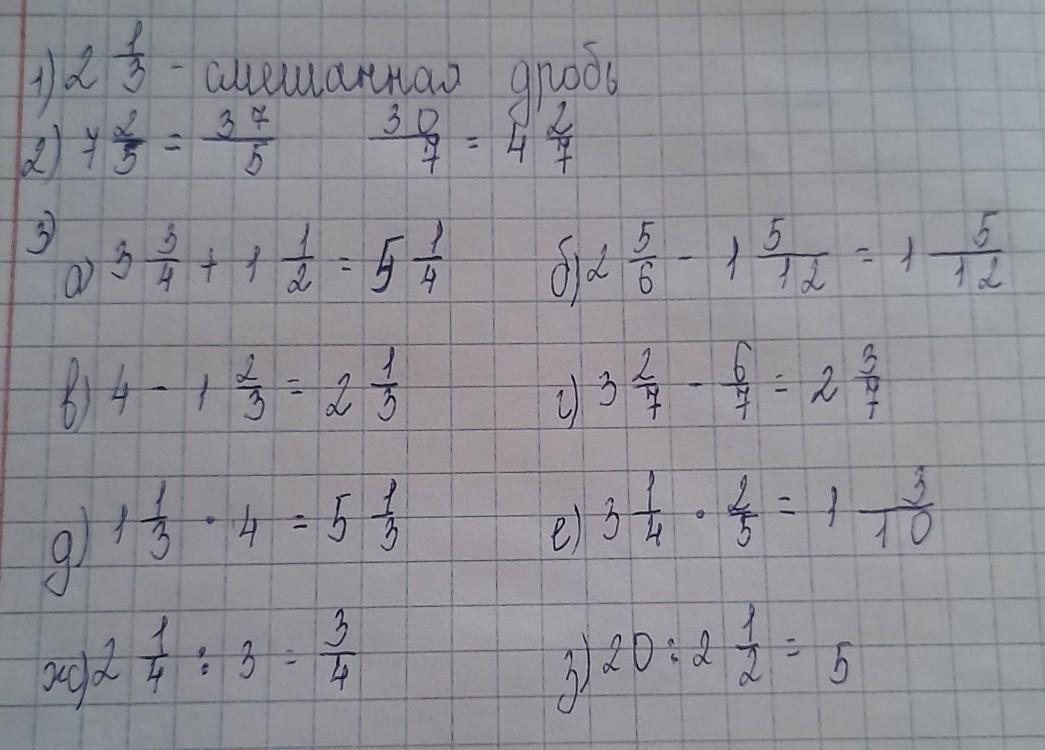 1) 2 1/3 - смешанная дробь
2) 7 2/5 = 37/5    30/7 = 4 2/7
3)
а) 3 3/4 + 1 1/2 = 5 1/4    б) 2 5/6 - 1 5/12 = 1 5/12
в) 4 - 1 2/3 = 2 1/3    г) 3 2/7 - 6/7 = 2 3/7
д) 1 1/3 · 4 = 5 1/3    е) 3 1/4 · 2/5 = 1 3/10
ж) 2 1/4 : 3 = 3/4    з) 20 : 2 1/2 = 5